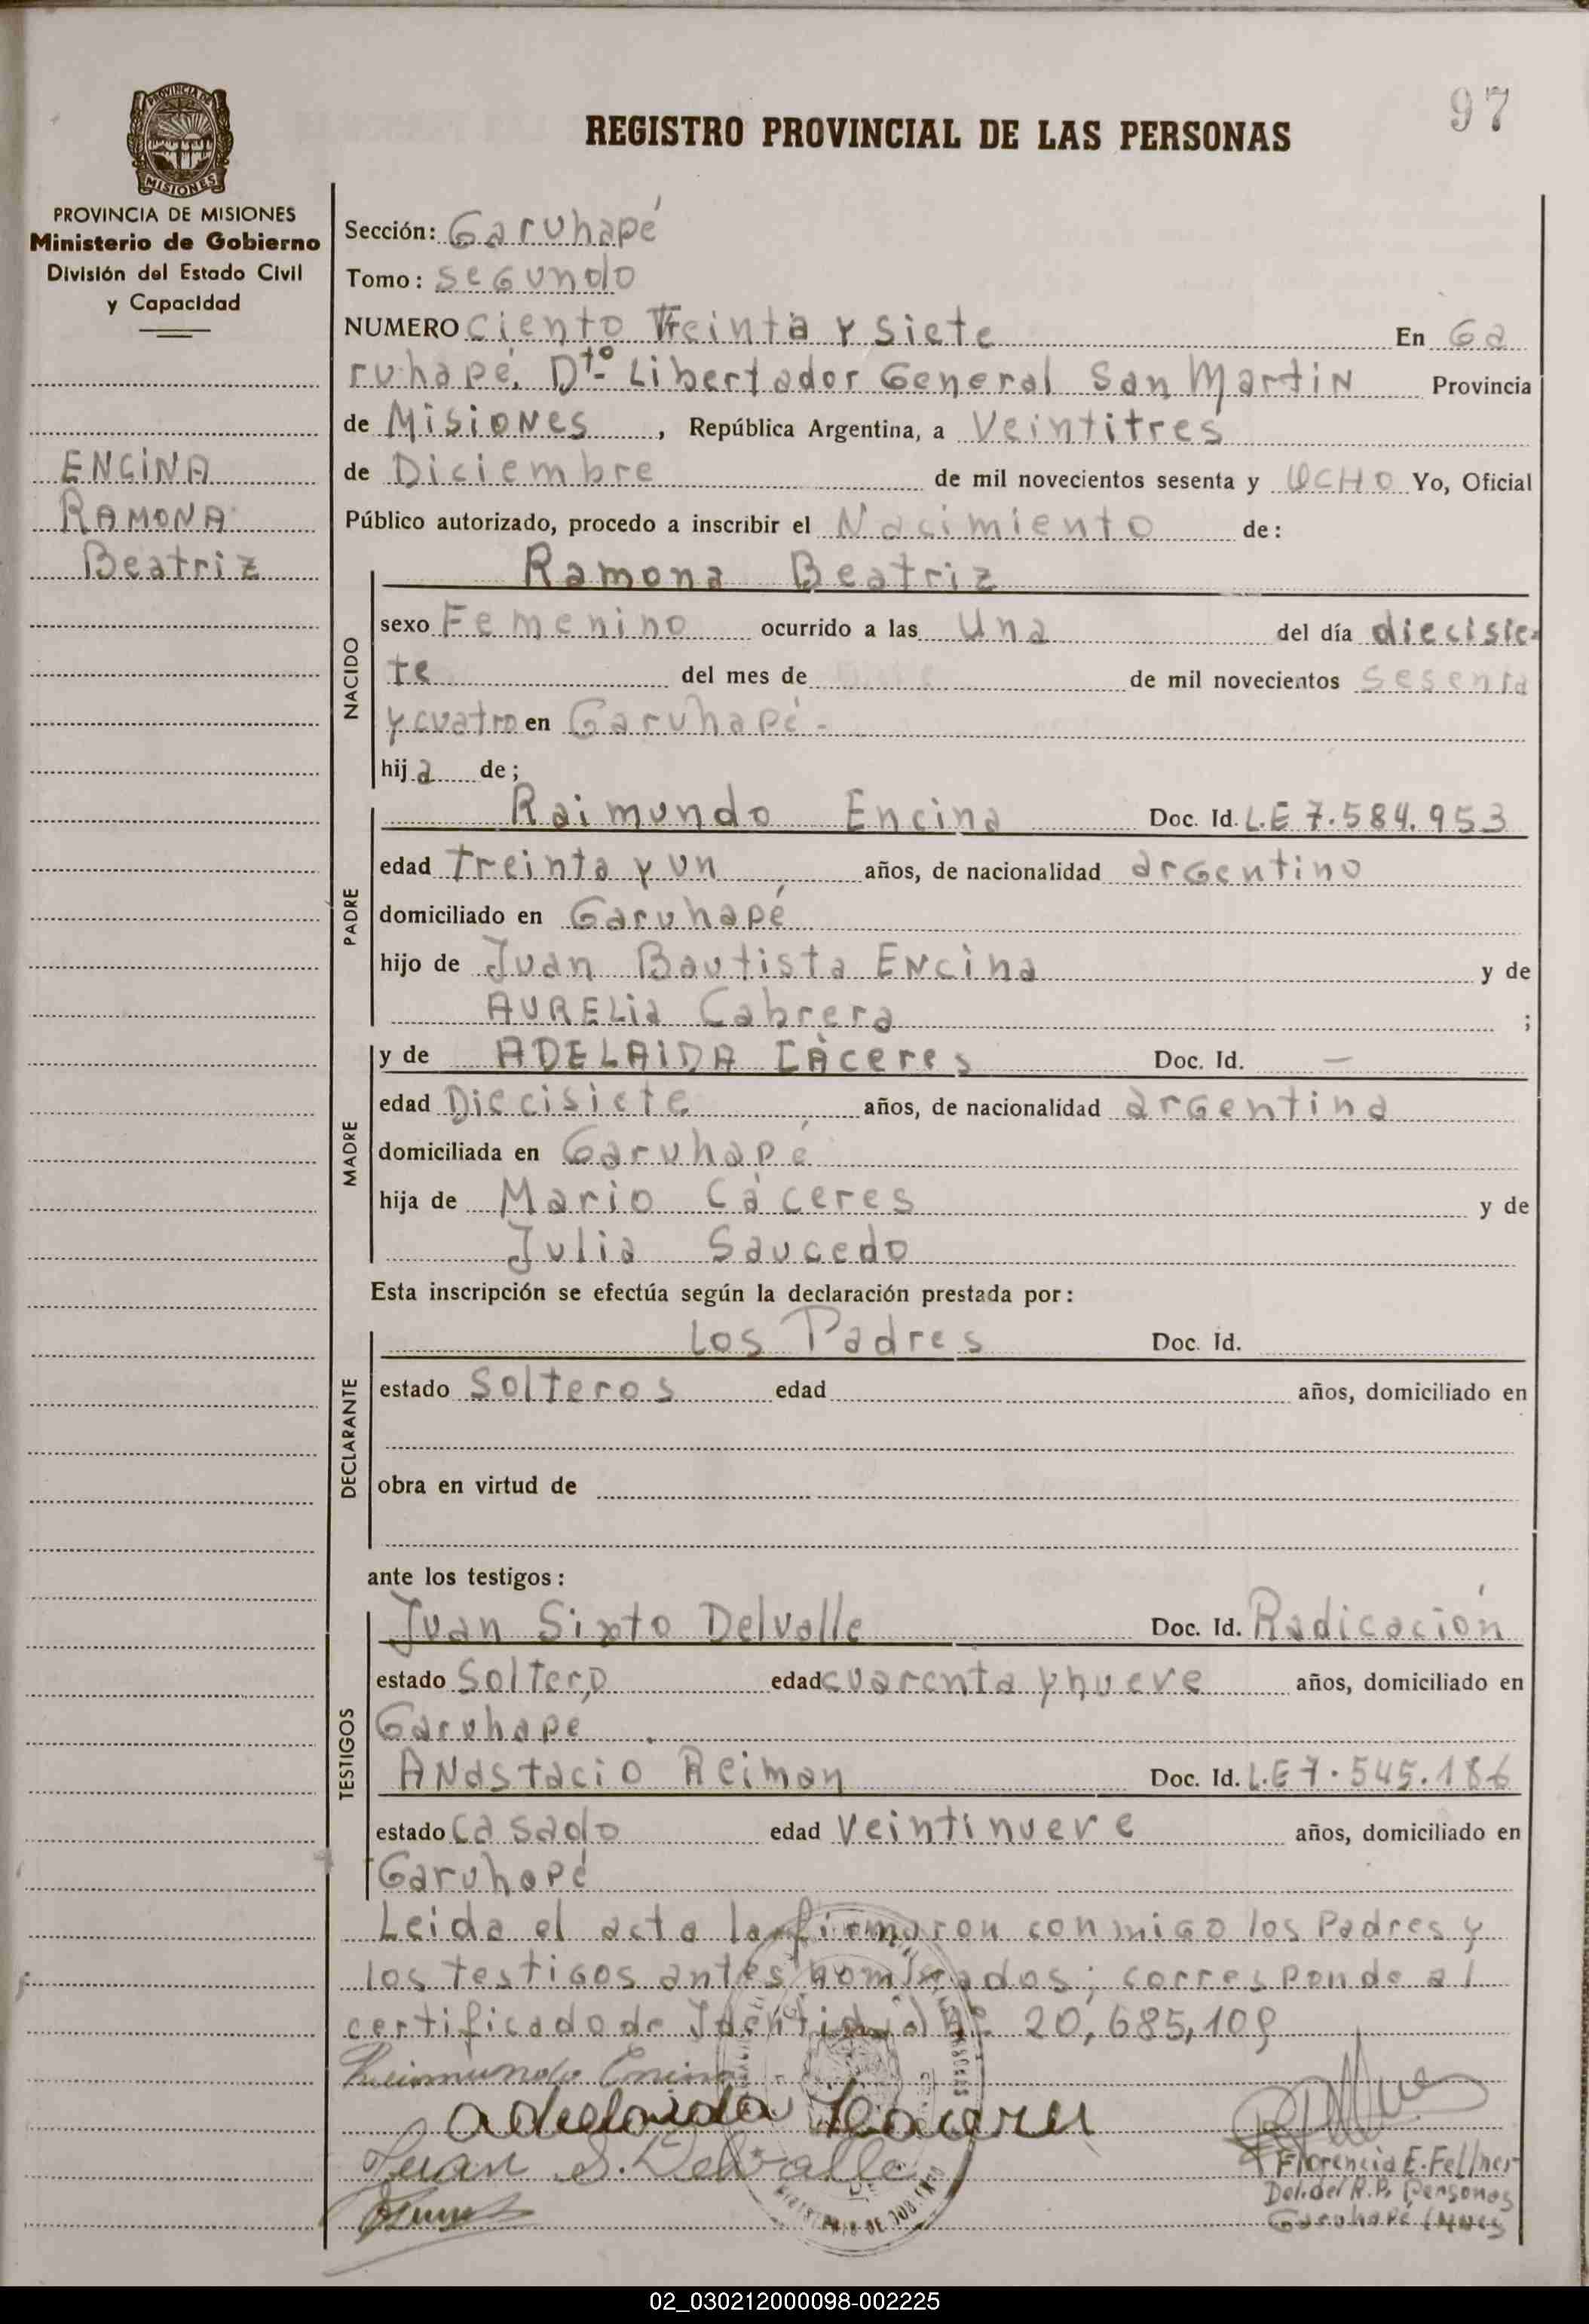 97
REGISTRO PROVINCIAL DE LAS PERSONAS
PROVINCIA DE MISIONES
Ministerio de Gobierno
División del Estado Civil
y Capacidad
ENCINA
RAMONA
Beatriz
Sección: Garuhapé
Tomo: segundo
NUMERO ciento Treinta y siete En Ga
ruhapé, Dtº Libertador General San Martin Provincia
de Misiones, República Argentina, a Veintitres
de Diciembre de mil novecientos sesenta y OCHO Yo, Oficial
Público autorizado, procedo a inscribir el Nacimiento de:
NACIDO
Ramona Beatriz
sexo Femenino ocurrido a las Una del día diecisie-
te del mes de de mil novecientos sesenta
y cuatro en Garuhapé-
hija de;
PADRE
Raimundo Encina Doc. Id. L.E 7.584.953
edad Treinta y un años, de nacionalidad argentino
domiciliado en Garuhapé
hijo de Juan Bautista Encina y de
AURELia Cabrera ;
MADRE
y de ADELAIDA CÁceres Doc. Id. —
edad Diecisiete años, de nacionalidad argentina
domiciliada en Garuhapé
hija de Mario Cáceres y de
Julia Saucedo
Esta inscripción se efectúa según la declaración prestada por:
DECLARANTE
Los Padres Doc. Id.
estado Solteros edad años, domiciliado en
obra en virtud de
ante los testigos:
TESTIGOS
Juan Sixto Delvalle Doc. Id. Radicación
estado Soltero edad cuarenta y nueve años, domiciliado en
Garuhape
Anastacio Reiman Doc. Id. L.E 7.545.186
estado casado edad Veintinueve años, domiciliado en
Garuhapé
Leida el acta la firmaron conmigo los Padres y
los testigos antes nombrados; corresponde al
certificado de Identidad Nº 20,685,109
Raimundo Encina
adelaida Caceres
Juan S. Delvalle
Florencia E. Fellner
Del. del R.P. Personas
Garuhapé (Mnes)
02_030212000098-002225